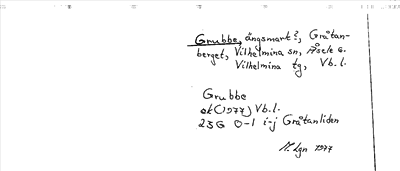 Grubbe, ängsmark?, Gråtan-
berget, Vilhelmina sn, Åsele
Vilhelmina tg, Vb.l.
Grubbe
ek (1977) Vb.l.
23G 0-1 i-j Gråtanliden
M. Lgn 1977